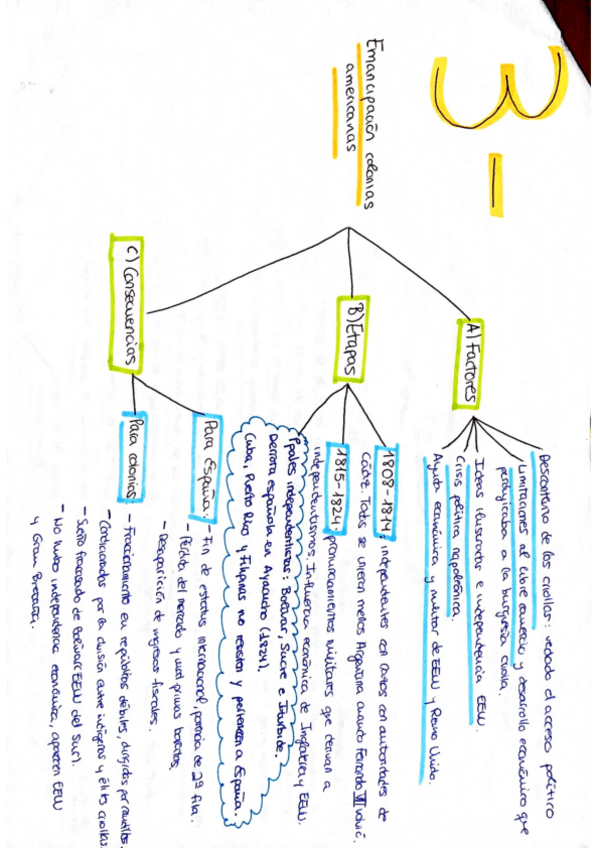 3-
Emancipación colonias
americanas
A) Factores
Descontento de los criollos: vedado el acceso político
Limitaciones al libre comercio y desarrollo económico que
perjudicaba a la burguesía criolla.
Ideas ilustradas e independencia EEUU.
Crisis política napoleónica.
Ayuda económica y militar de EEUU y Reino Unido.
B) Etapas
1808-1814: independentes con contacto con autoridades de
Cádiz. Todas se unieron menos Argentina cuando Fernando VII volvió.
1815-1824: pronunciamientos militares que derivan a
independentismos. Influencia económica de Inglaterra y EEUU.
Ppales independentistas: Bolívar, Sucre e Iturbide.
Derrota española en Ayacucho (1824).
Cuba, Puerto Rico y Filipinas no resisten y pertenecen a España.
C) Consecuencias
Para España:
- Fin de estatus internacional, potencia de 2ª fila.
- Pérdida del mercado y mat primas baratas.
- Desaparición de ingresos fiscales.
Para colonias:
- Fraccionamiento en repúblicas débiles, dirigidas por caudillos.
- Condicionadas por la división entre indígenas y élites criollas.
- Sueño fracasado de Bolívar (EEUU del Sur).
- No hubo independencia económica, aparecen EEUU
y Gran Bretaña.